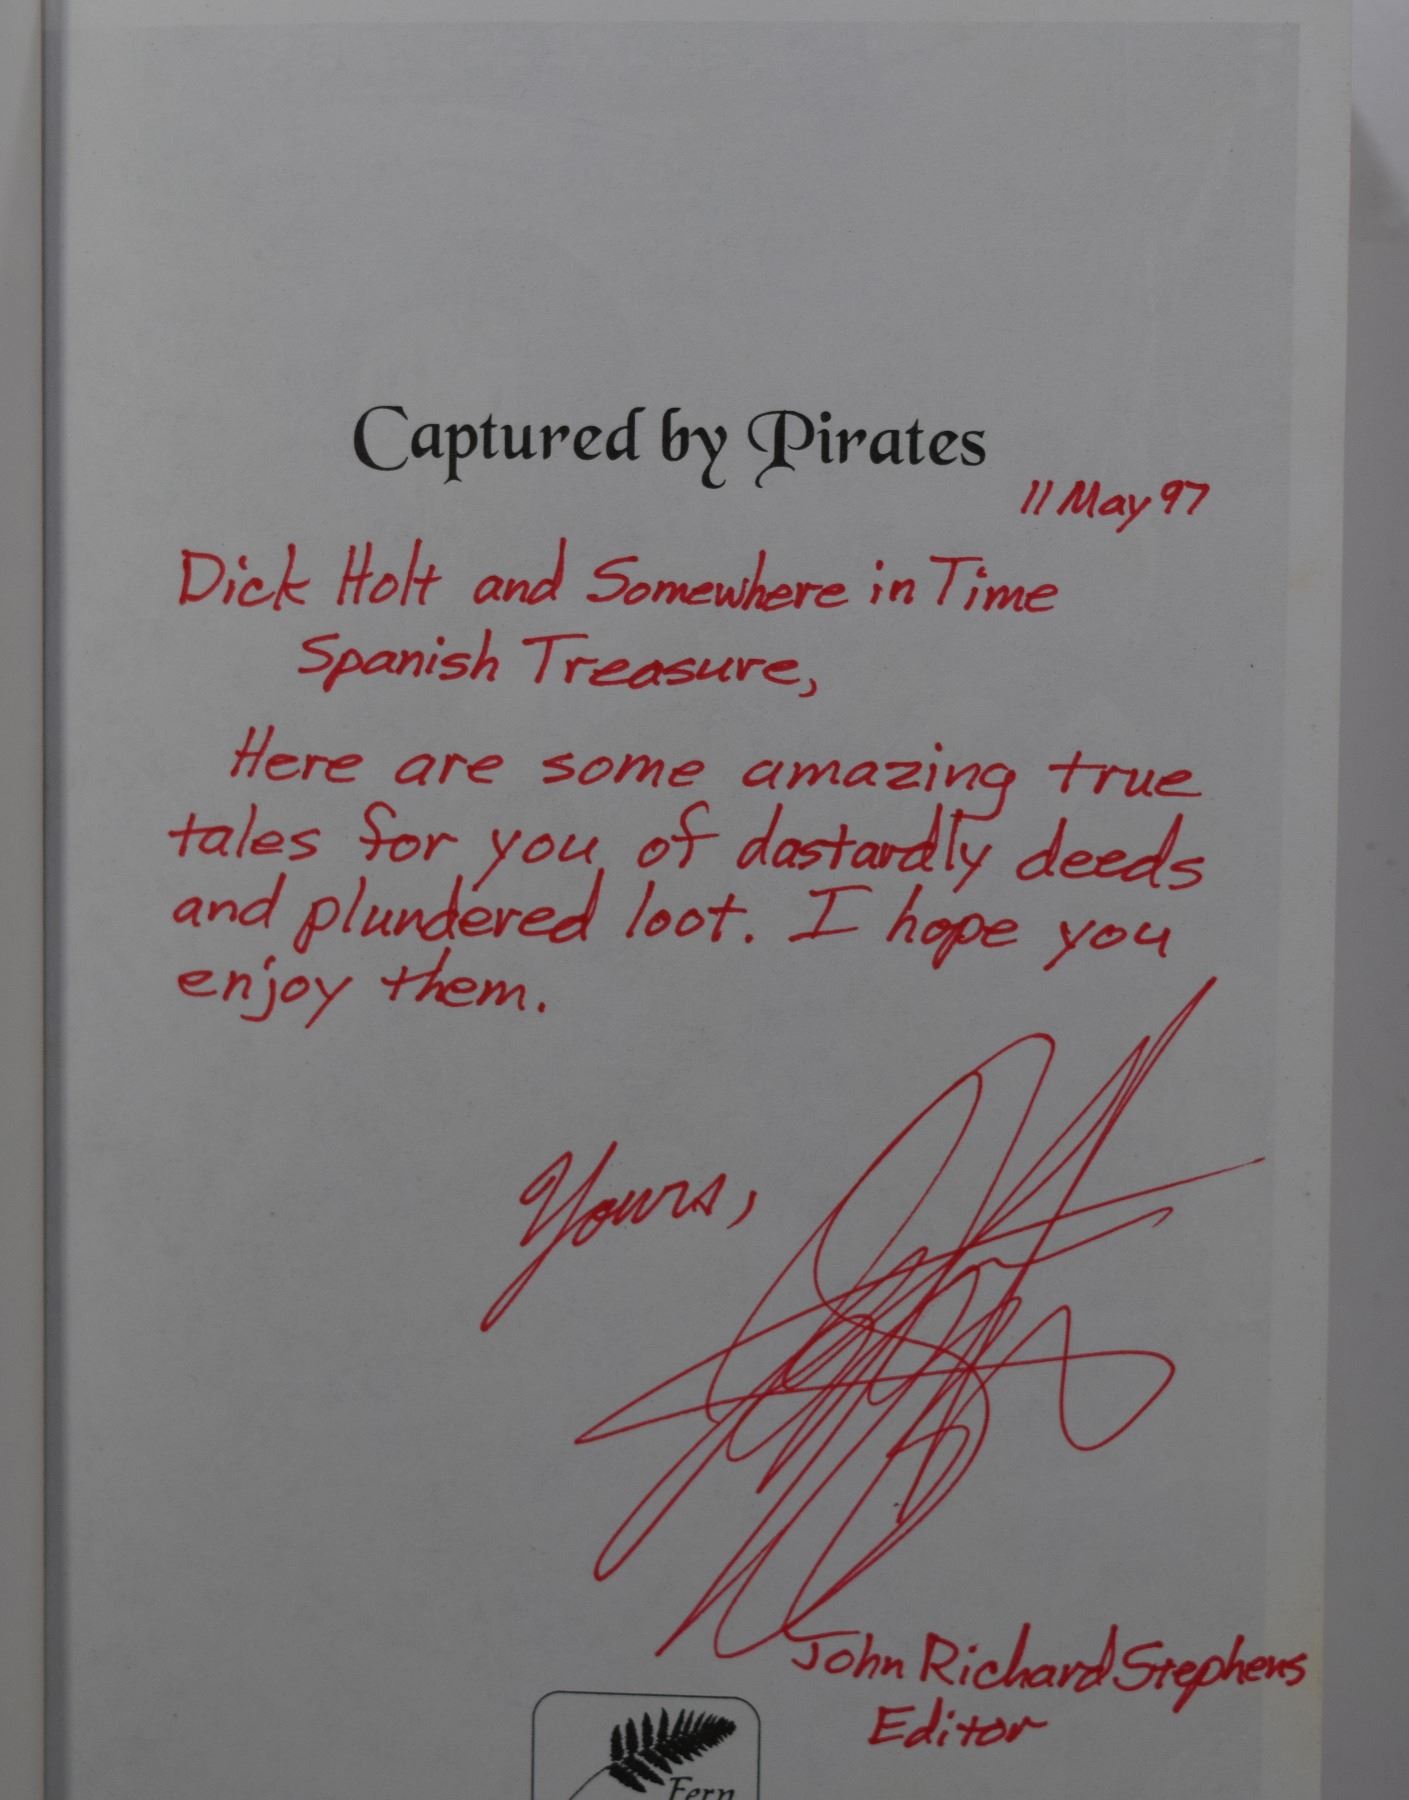 Captured by Pirates
11 May 97
Dick Holt and Somewhere in Time
Spanish Treasure,
Here are some amazing true
tales for you of dastardly deeds
and plundered loot. I hope you
enjoy them.
Yours,
John Richard Stephens
Editor
Fern